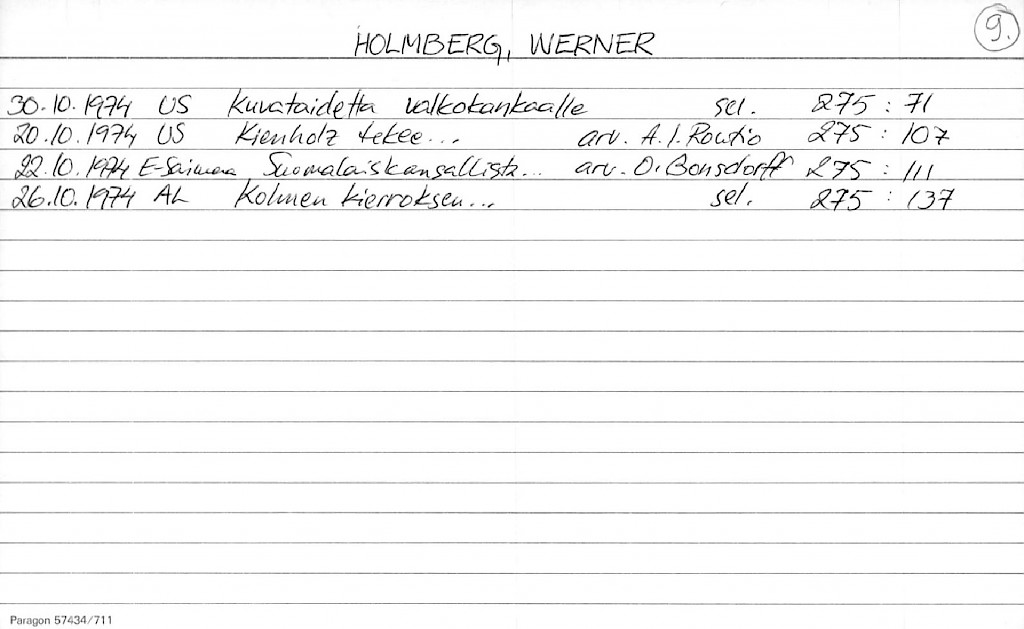 9.
HOLMBERG, WERNER
30.10.1974 US Kuvataidetta valkokankaalle sel. 275 : 71
20.10.1974 US Kienholz tekee... arv. A. I. Routio 275 : 107
22.10.1974 E-Saimaa Suomalaiskansallista... arv. O. Bonsdorff 275 : 111
26.10.1974 AL Kolmen kierroksen... sel. 275 : 137
Paragon 57434/711